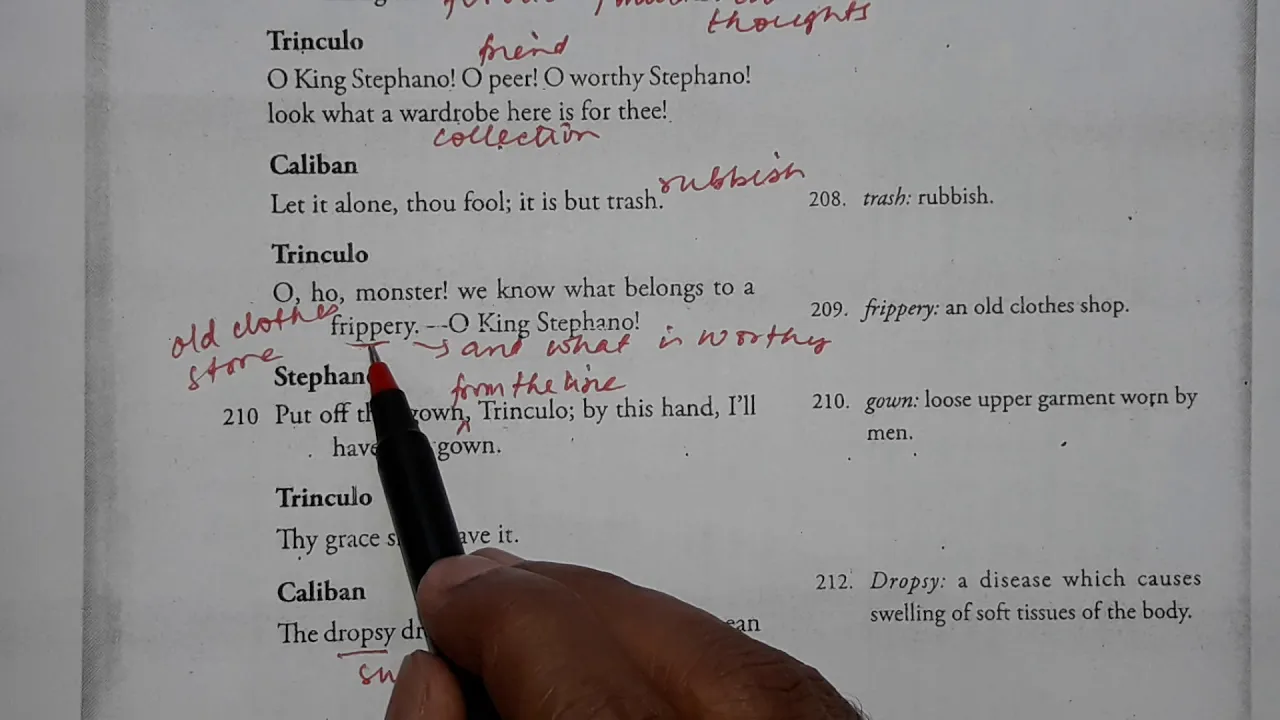 thoughts
Trinculo
freind
O King Stephano! O peer! O worthy Stephano!
look what a wardrobe here is for thee!
collection
Caliban
rubbish
Let it alone, thou fool; it is but trash.
208. trash: rubbish.
Trinculo
O, ho, monster! we know what belongs to a
old clothes
store
frippery. --O King Stephano!
209. frippery: an old clothes shop.
and what is worthy
Stephan
from the line
210 Put off th gown, Trinculo; by this hand, I'll
have gown.
210. gown: loose upper garment worn by
men.
Trinculo
Thy grace s ave it.
Caliban
The dropsy dr ean
212. Dropsy: a disease which causes
swelling of soft tissues of the body.